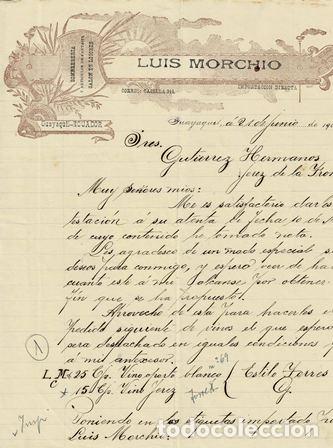 SOMBRERERIA
SALON DE LONDRES
LUIS MORCHIO
CORREO: CASILLA
IMPORTACION DIRECTA
Guayaquil-ECUADOR
Guayaquil, á 21 de Junio de 19
Sres.
Gutierrez Hermanos
Jerez de la Fron
Muy Señores mios:
Me es satisfactorio darles
testación á su atenta de fecha 10 de
de cuyo contenido he tomado nota.
Les agradesco de un modo especial
deseos para conmigo, y espero
cuanto esté á mi alcanse por obtener
fin que se ha propuesto.
Aprovecho de esta para hacerles
pedido siguiente de vinos el que espero
sera despachado en iguales condiciones
á mi antecesor.
1
L. M. 25 C/. Vino oporto blanco
C
15 C/. Vino Jerez
Estilo Torres
Poniendo en las etiquetas importado
Luis Morchio
todocoleccion